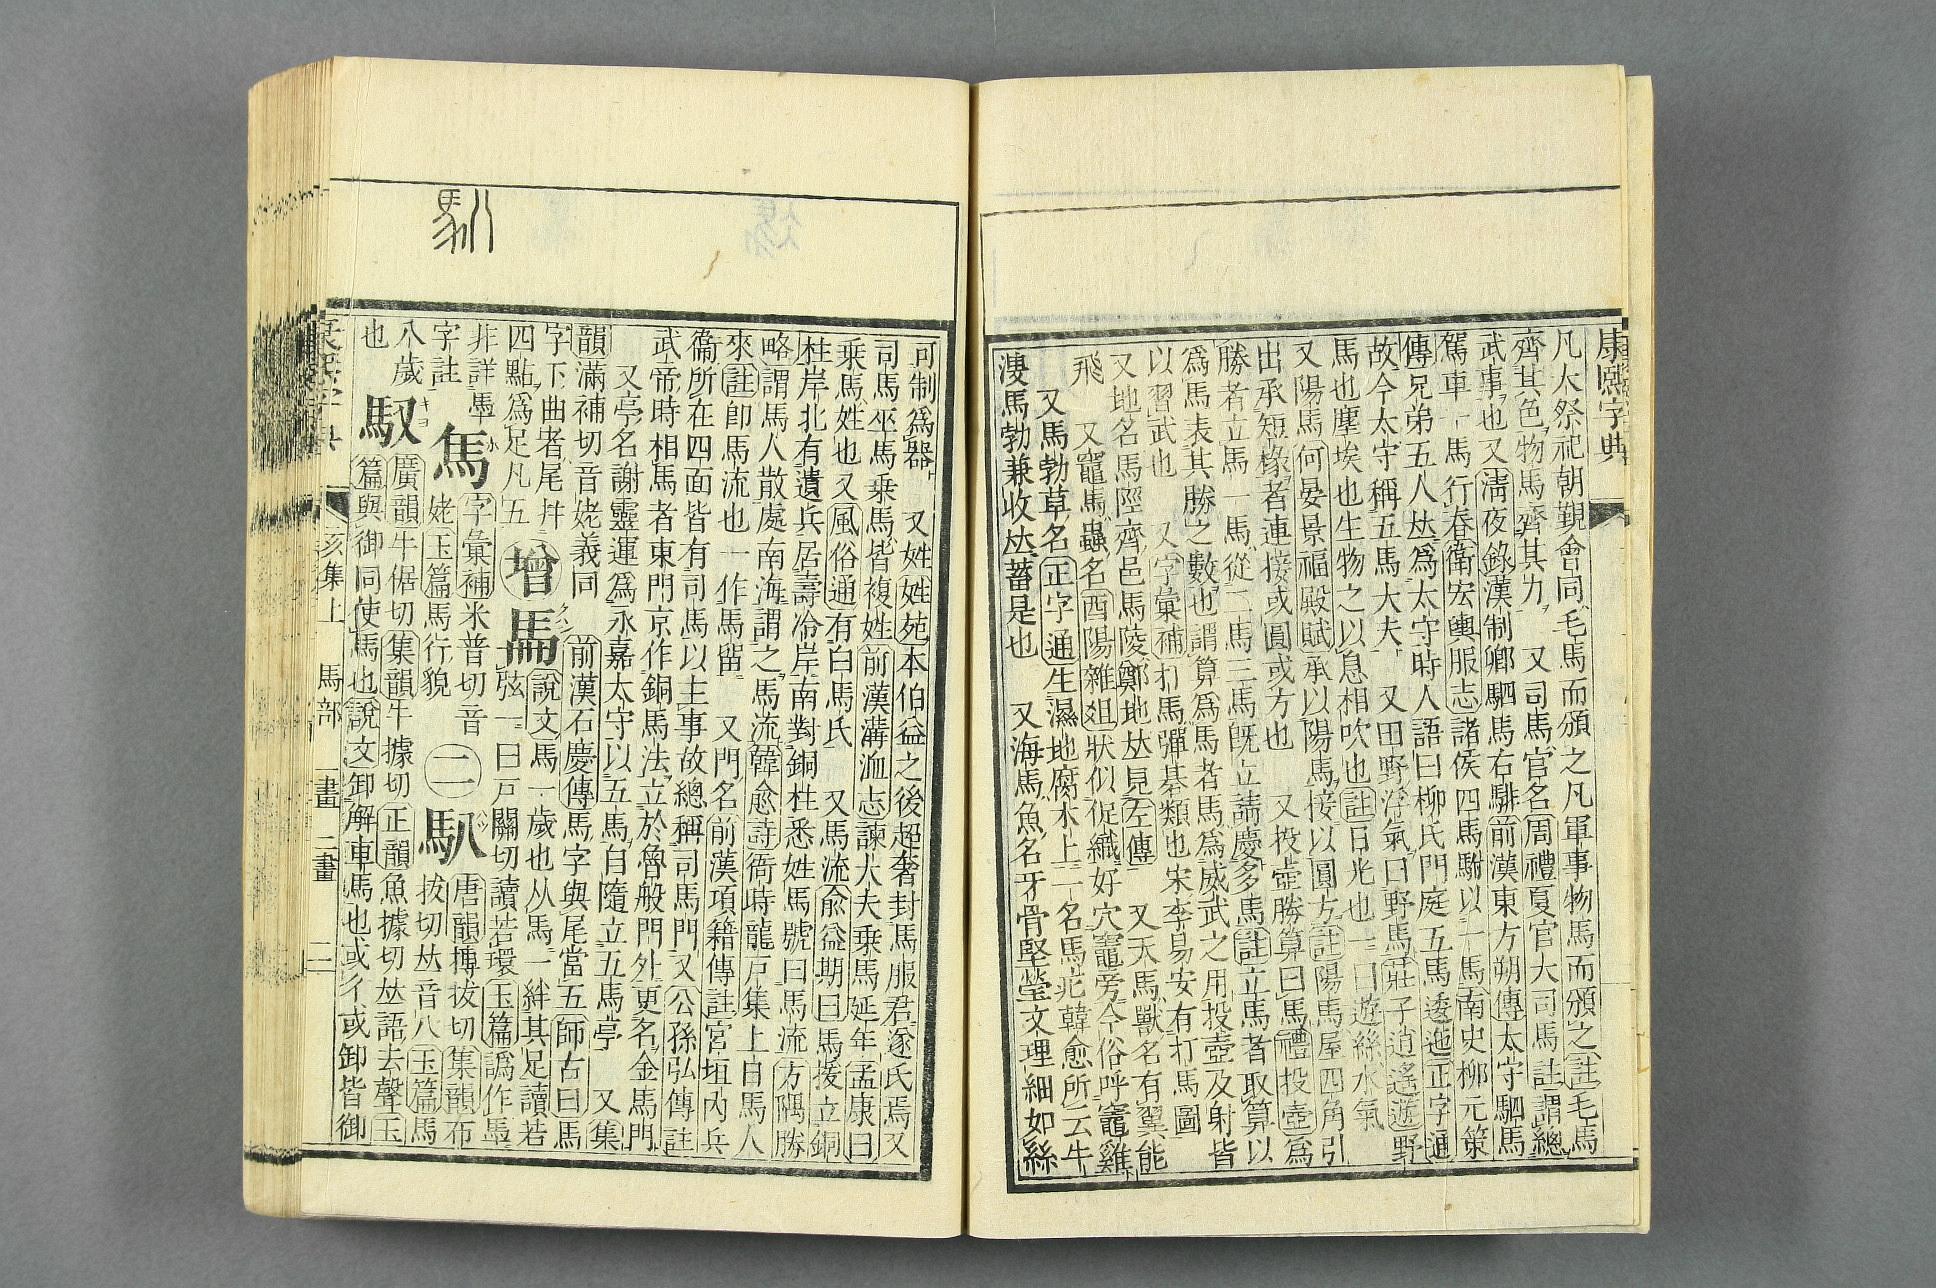 康熙字典
凡大祭祀朝覲會同毛馬而頒之凡軍事物馬而頒之註毛馬
齊其色物馬齊其力 又司馬官名周禮夏官大司馬註謂總
武事也又淸夜錄漢制鄉駟馬右騑前漢東方朔傳太守駟馬
駕車一馬行春衞宏輿服志諸侯四馬駙以一馬南史柳元策
傳兄弟五人𠀤爲太守時人語曰柳氏門庭五馬逶迤正字通
故今太守稱五馬大夫 又田野浮氣曰野馬莊子逍遙遊野
馬也塵埃也生物之以息相吹也註日光也一曰遊絲水氣
又陽馬何晏景福殿賦承以陽馬接以圓方註陽馬屋四角引
出承短椽者連接或圓或方也 又投壺勝算曰馬禮投壺爲
勝者立馬一馬從二馬三馬旣立請慶多馬註立馬者取算以
爲馬表其勝之數也謂算爲馬者馬爲威武之用投壺及射皆
以習武也 又字彙補打馬彈棊類也宋李易安有打馬圖
又地名馬陘齊邑馬陵鄭地𠀤見左傳 又天馬獸名有翼能
飛 又竈馬蟲名酉陽雜俎狀似促織好穴竈旁今俗呼竈雞
又馬勃草名正字通生濕地腐木上一名馬𤵸韓愈所云牛
溲馬勃兼收𠀤蓄是也 又海馬魚名牙骨堅瑩文理細如絲
可制爲器 又姓姓苑本伯益之後趙奢封馬服君遂氏焉又
司馬巫馬乗馬皆複姓前漢溝洫志諫大夫乗馬延年孟康曰
乗馬姓也又風俗通有白馬氏 又馬流兪益期曰馬援立銅
柱岸北有遺兵居壽冷岸南對銅柱悉姓馬號曰馬流方隅勝
略謂馬人散處南海謂之馬流韓愈詩衙時龍戸集上日馬人
來註卽馬流也一作馬留 又門名前漢項籍傳註宮垣內兵
衞所在四面皆有司馬司馬以主事故總稱司馬門又公孫弘傳註
武帝時相馬者東門京作銅馬法立於魯般門外更名金馬門
又亭名謝靈運爲永嘉太守以五馬自隨立五馬亭 又集
韻滿補切音姥義同 前漢石慶傳馬字與尾當五師古曰馬
字下曲者尾幷
四點爲足凡五
增
馬 說文馬一歲也从馬一絆其足讀若
弦一曰戸關切讀若環玉篇譌作馵
非詳馵
字註
馬 字彙補米普切音
姥玉篇馬行貌
二
馴 唐韻摶拔切集韻布
拔切𠀤音八玉篇馬
八歲
也
馭 廣韻牛倨切集韻牛據切正韻魚據切𠀤語去聲玉
篇與御同使馬也說文卸解車馬也或彳或卸皆御
康熙字典
亥集上 馬部 一畫 二畫 二